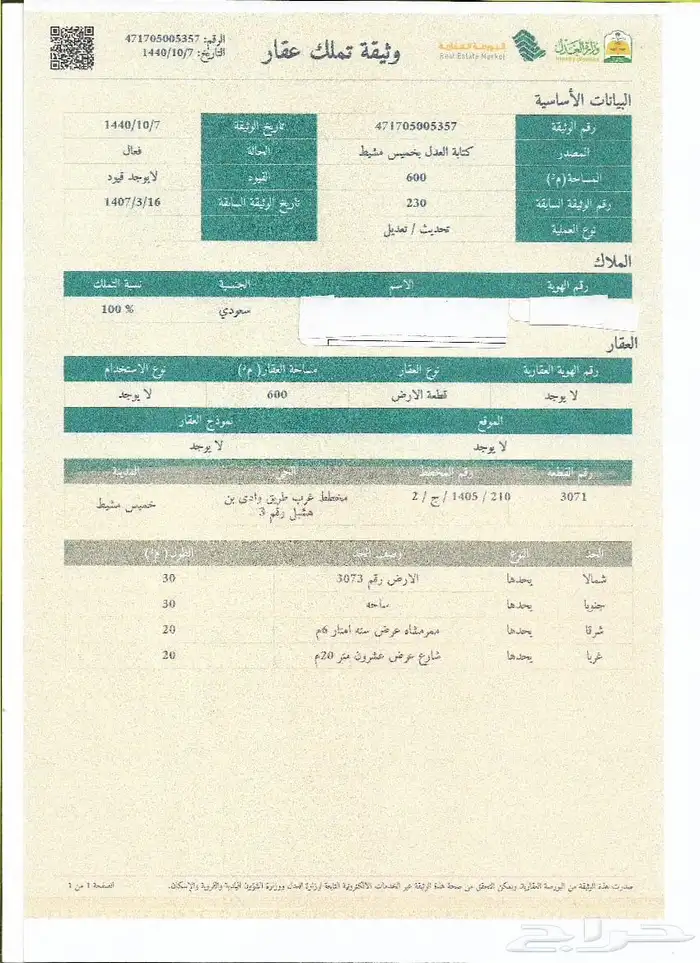 الرقم: 471705005357
التاريخ: 1440/10/7
وثيقة تملك عقار
البورصة العقارية
Real Estate Market
وزارة العدل
البيانات الأساسية
رقم الوثيقة 471705005357 تاريخ الوثيقة 1440/10/7
المصدر كتابة العدل بخميس مشيط الحالة فعال
المساحة(م²) 600 القيود لايوجد قيود
رقم الوثيقة السابقة 230 تاريخ الوثيقة السابقة 1407/3/16
نوع العملية تحديث / تعديل
الملاك
رقم الهوية الاسم الجنسية نسبة التملك
سعودي 100 %
العقار
رقم الهوية العقارية نوع العقار مساحة العقار( م²) نوع الاستخدام
لا يوجد قطعة الارض 600 لا يوجد
الموقع نموذج العقار
لا يوجد لا يوجد
رقم القطعة رقم المخطط الحي المدينة
3071 210 / 1405 / ج / 2 مخطط غرب طريق وادى بن هشبل رقم 3 خميس مشيط
الحد النوع وصف الحد الطول( م²)
شمالا يحدها الارض رقم 3073 30
جنوبا يحدها ساحه 30
شرقا يحدها ممرمشاه عرض سته امتار 6م 20
غربا يحدها شارع عرض عشرون متر 20م 20
صدرت هذه الوثيقة من البورصة العقارية، ويمكن التحقق من صحة هذه الوثيقة عبر الخدمات الالكترونية التابعة لوزارة العدل ووزارة الشؤون البلدية والقروية والإسكان.
الصفحة 1 من 1
حراج